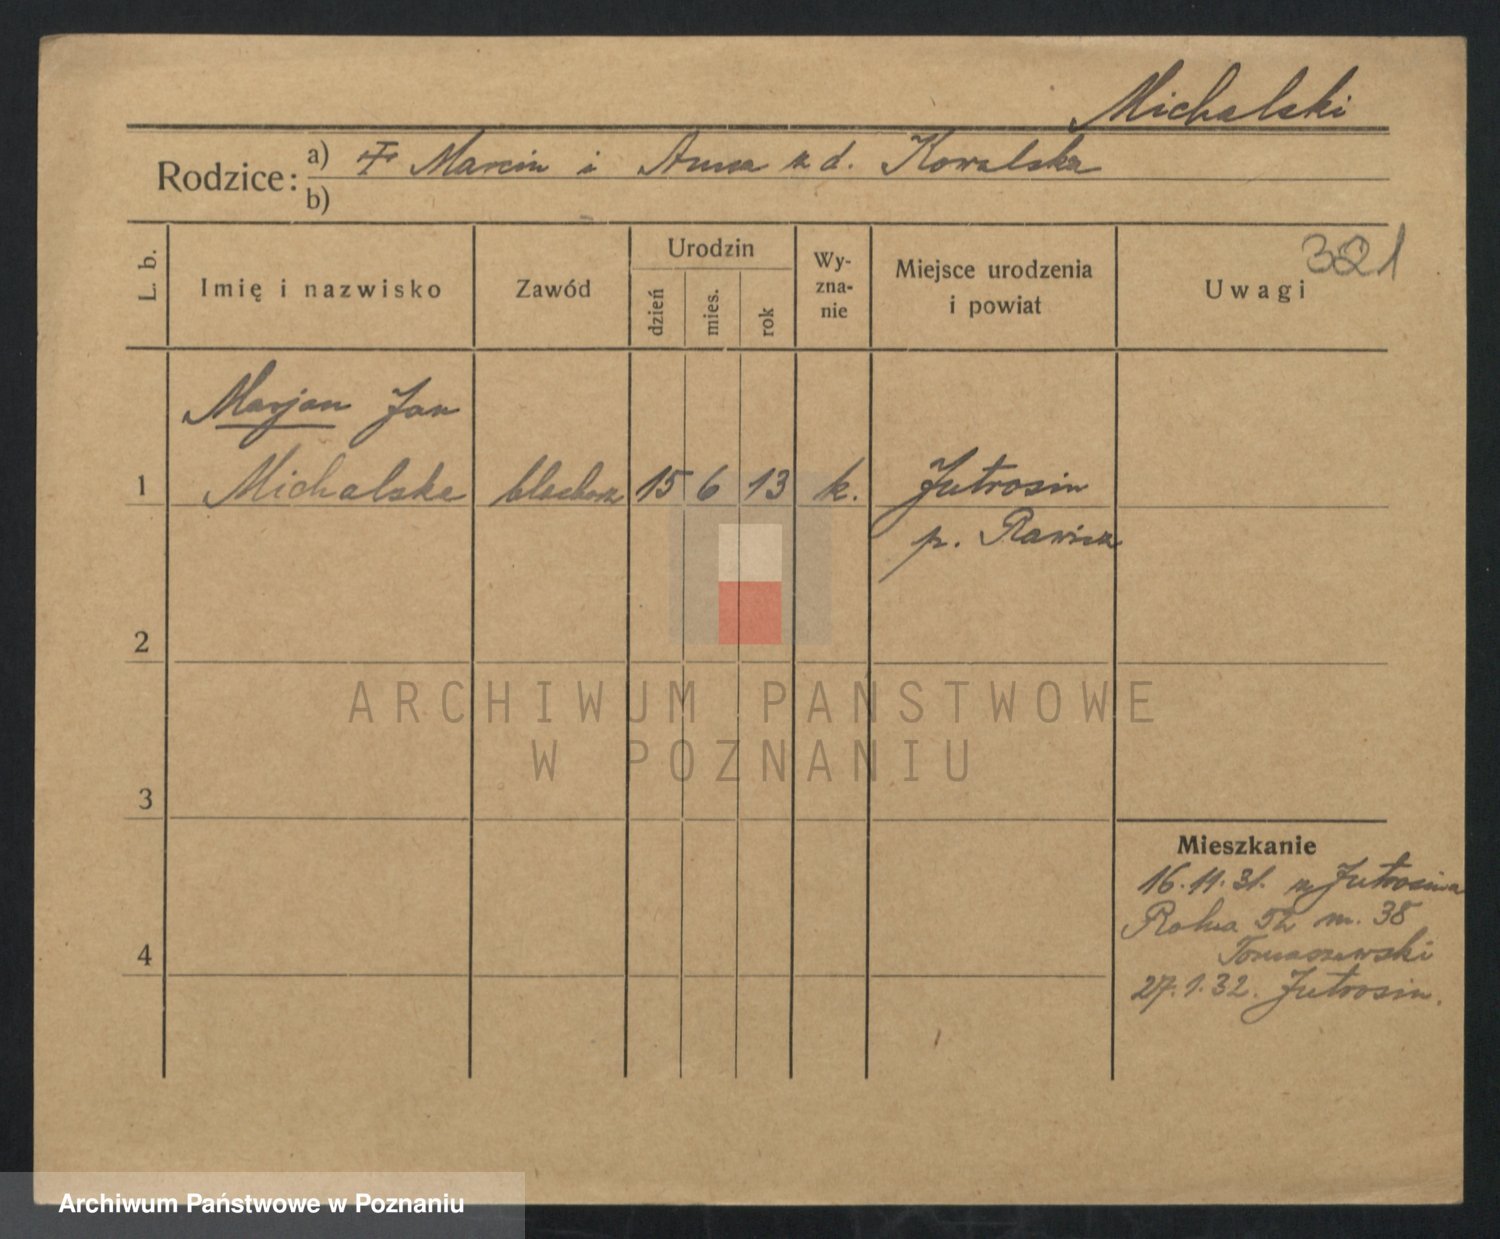 Michalski
Rodzice: a) Marcin i Anna z d. Kowalska
b)
321
L. b. Imię i nazwisko Zawód Urodzin dzień mies. rok Wyznanie Miejsce urodzenia i powiat Uwagi
Marjan Jan
1 Michalski blacharz 15 6 13 k. Jutrosin
p. Rawicz
2
ARCHIWUM PAŃSTWOWE
W POZNANIU
3
Mieszkanie
16.11.31. z Jutrosina
Rolna 52 m. 38
4 Tomaszewski
27.1.32. Jutrosin.
Archiwum Państwowe w Poznaniu